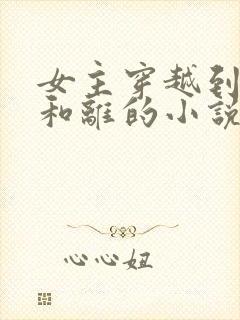 女主穿越到
和離的小說
心心妞